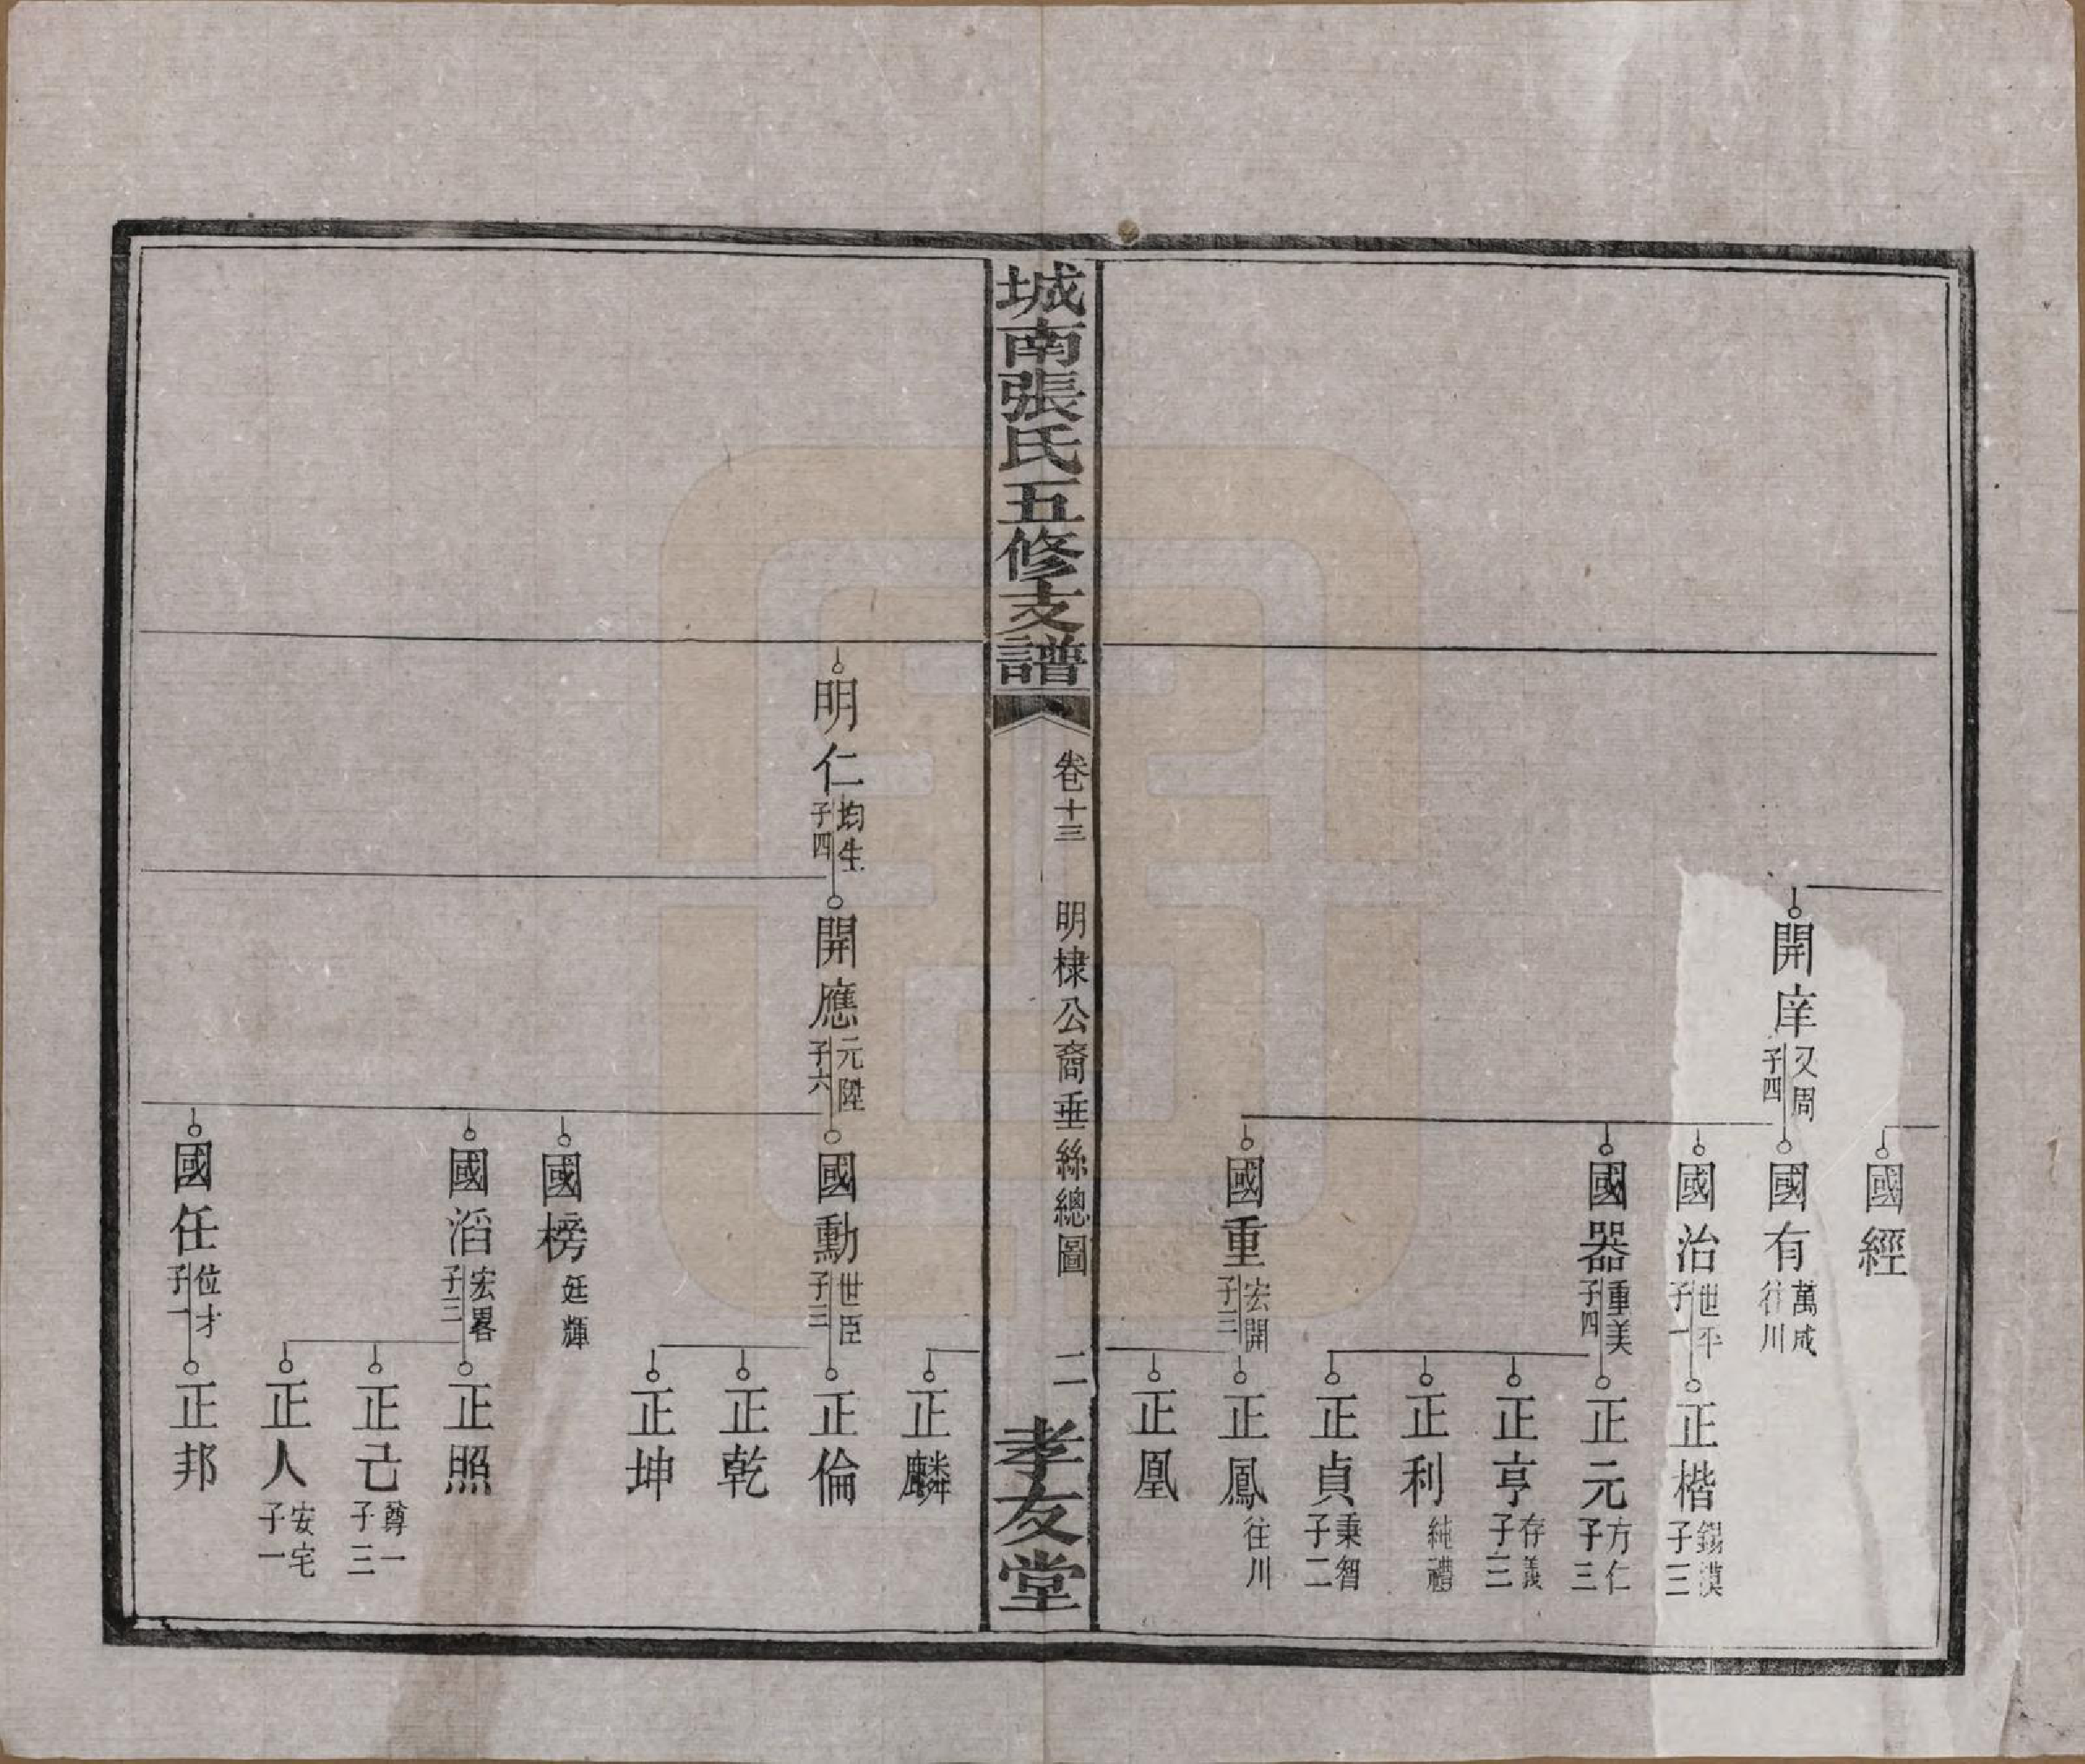 國經
開庠
又周
子四
國有
萬成
往川
國治
世平
子一
正楷
錫漠
子三
國器
重美
子四
正元
方仁
子三
正亨
存義
子三
正利
純禮
正貞
秉智
子二
國重
宏開
子三
正鳳
往川
正凰
城南張氏五修支譜
卷十三
明棣公裔垂絲總圖
二
孝友堂
正麟
明仁
均生
子四
開應
元陞
子六
國勳
世臣
子三
正倫
正乾
正坤
國榜
廷輝
國滔
宏畧
子三
正照
正己
尊一
子三
正人
安宅
子一
國任
位才
子一
正邦